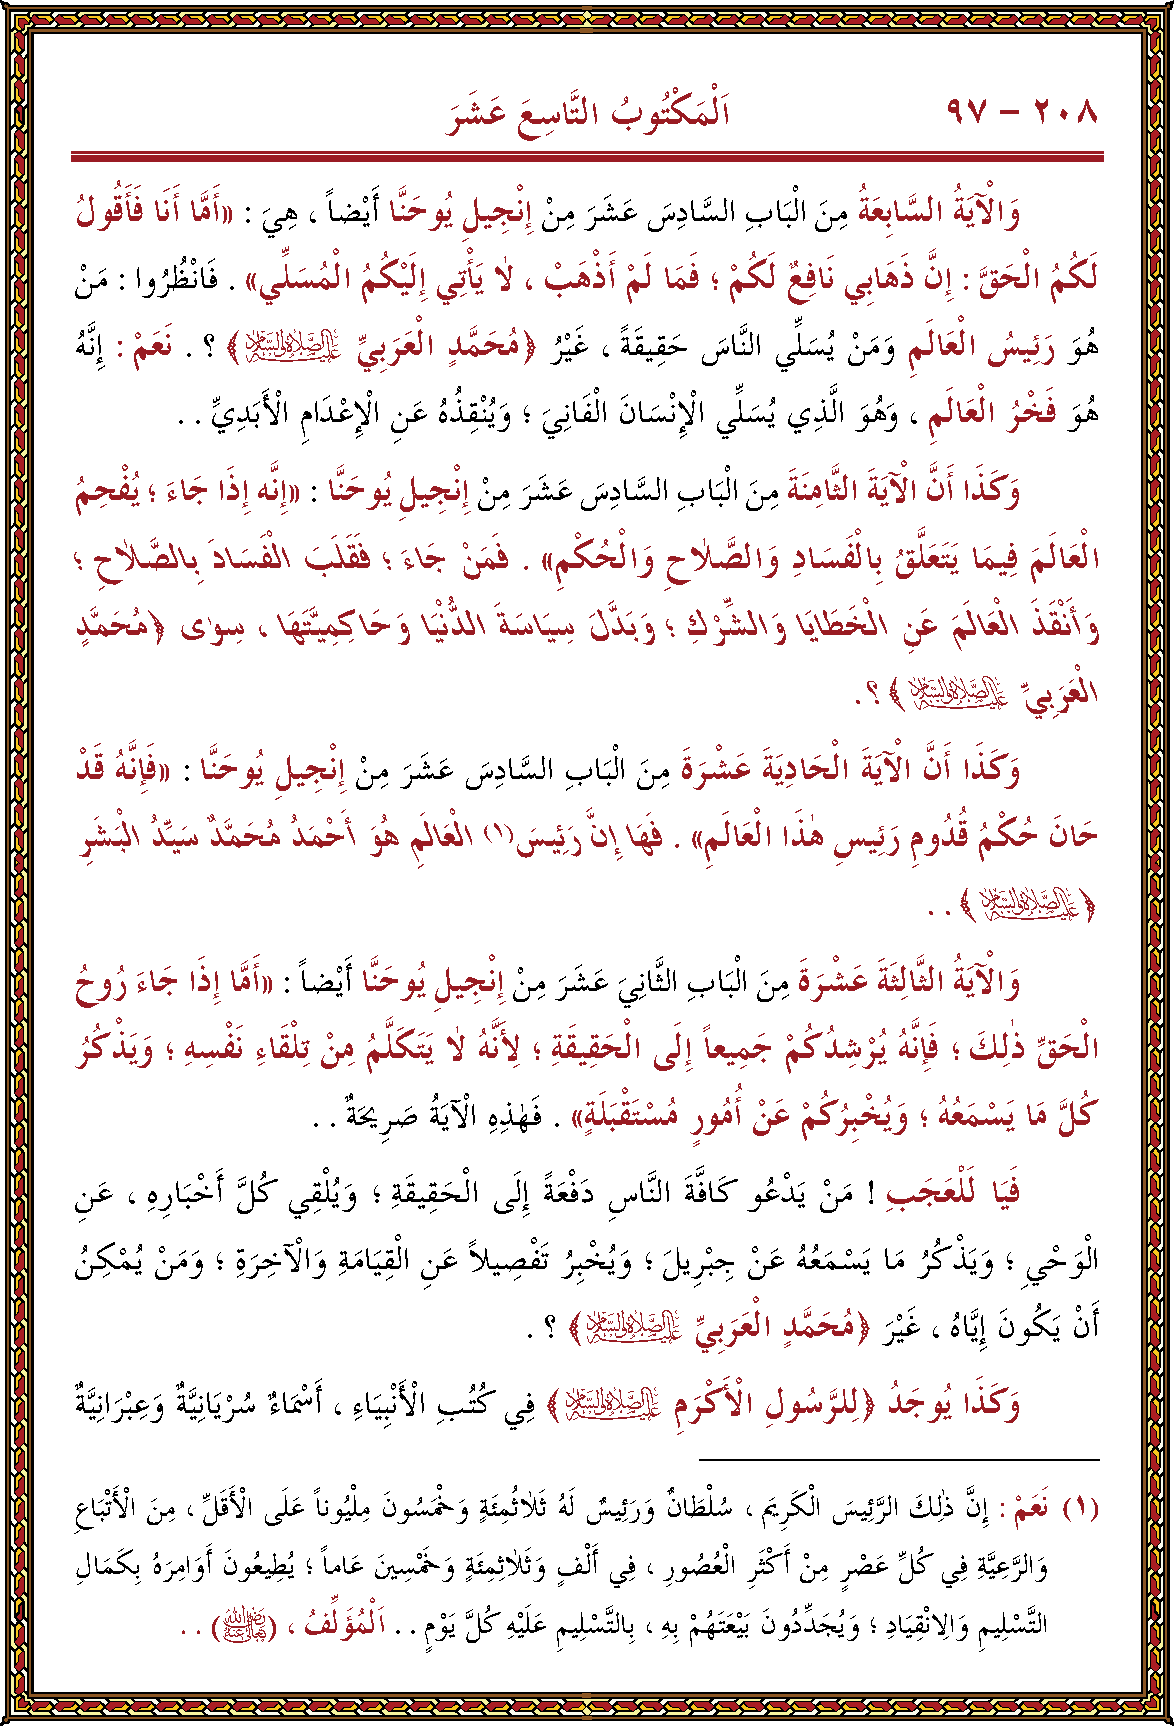 ٢٠٨ - ٩٧ اَلْمَكْتُوبُ التَّاسِعَ عَشَرَ
وَالْآيَةُ السَّابِعَةُ مِنَ الْبَابِ السَّادِسَ عَشَرَ مِنْ إِنْجِيلِ يُوحَنَّا أَيْضاً ، هِيَ : «أَمَّا أَنَا فَأَقُولُ
لَكُمُ الْحَقَّ : إِنَّ ذَهَابِي نَافِعٌ لَكُمْ ؛ فَمَا لَمْ أَذْهَبْ ، لَا يَأْتِي إِلَيْكُمُ الْمُسَلِّي» . فَانْظُرُوا : مَنْ
هُوَ رَئِيسُ الْعَالَمِ وَمَنْ يُسَلِّي النَّاسَ حَقِيقَةً ، غَيْرُ ﴿مُحَمَّدٍ الْعَرَبِيِّ عَلَيْهِ الصَّلَاةُ وَالسَّلَامُ﴾ ؟ . نَعَمْ : إِنَّهُ
هُوَ فَخْرُ الْعَالَمِ ، وَهُوَ الَّذِي يُسَلِّي الْإِنْسَانَ الْفَانِيَ ؛ وَيُنْقِذُهُ عَنِ الْإِعْدَامِ الْأَبَدِيِّ . .
وَكَذَا أَنَّ الْآيَةَ الثَّامِنَةَ مِنَ الْبَابِ السَّادِسَ عَشَرَ مِنْ إِنْجِيلِ يُوحَنَّا : «إِنَّه إِذَا جَاءَ ؛ يُفْحِمُ
الْعَالَمَ فِيمَا يَتَعَلَّقُ بِالْفَسَادِ وَالصَّلَاحِ وَالْحُكْمِ» . فَمَنْ جَاءَ ؛ فَقَلَبَ الْفَسَادَ بِالصَّلَاحِ ؛
وَأَنْقَذَ الْعَالَمَ عَنِ الْخَطَايَا وَالشِّرْكِ ؛ وَبَدَّلَ سِيَاسَةَ الدُّنْيَا وَحَاكِمِيَّتَهَا ، سِوٰى ﴿مُحَمَّدٍ
الْعَرَبِيِّ عَلَيْهِ الصَّلَاةُ وَالسَّلَامُ﴾ ؟ .
وَكَذَا أَنَّ الْآيَةَ الْحَادِيَةَ عَشْرَةَ مِنَ الْبَابِ السَّادِسَ عَشَرَ مِنْ إِنْجِيلِ يُوحَنَّا : «فَإِنَّهُ قَدْ
حَانَ حُكْمُ قُدُومِ رَئِيسِ هٰذَا الْعَالَمِ» . فَهَا إِنَّ رَئِيسَ(١) الْعَالَمِ هُوَ أَحْمَدُ مُحَمَّدٌ سَيِّدُ الْبَشَرِ
﴿عَلَيْهِ الصَّلَاةُ وَالسَّلَامُ﴾ . .
وَالْآيَةُ الثَّالِثَةَ عَشْرَةَ مِنَ الْبَابِ الثَّانِيَ عَشَرَ مِنْ إِنْجِيلِ يُوحَنَّا أَيْضاً : «أَمَّا إِذَا جَاءَ رُوحُ
الْحَقِّ ذٰلِكَ ؛ فَإِنَّهُ يُرْشِدُكُمْ جَمِيعاً إِلَى الْحَقِيقَةِ ؛ لِأَنَّهُ لَا يَتَكَلَّمُ مِنْ تِلْقَاءِ نَفْسِهِ ؛ وَيَذْكُرُ
كُلَّ مَا يَسْمَعُهُ ؛ وَيُخْبِرُكُمْ عَنْ أُمُورٍ مُسْتَقْبَلَةٍ» . فَهٰذِهِ الْآيَةُ صَرِيحَةٌ . .
فَيَا لَلْعَجَبِ ! مَنْ يَدْعُو كَافَّةَ النَّاسِ دَفْعَةً إِلَى الْحَقِيقَةِ ؛ وَيُلْقِي كُلَّ أَخْبَارِهِ ، عَنِ
الْوَحْيِ ؛ وَيَذْكُرُ مَا يَسْمَعُهُ عَنْ جِبْرِيلَ ؛ وَيُخْبِرُ تَفْصِيلاً عَنِ الْقِيَامَةِ وَالْآخِرَةِ ؛ وَمَنْ يُمْكِنُ
أَنْ يَكُونَ إِيَّاهُ ، غَيْرَ ﴿مُحَمَّدٍ الْعَرَبِيِّ عَلَيْهِ الصَّلَاةُ وَالسَّلَامُ﴾ ؟ .
وَكَذَا يُوجَدُ ﴿لِلرَّسُولِ الْأَكْرَمِ عَلَيْهِ الصَّلَاةُ وَالسَّلَامُ﴾ فِي كُتُبِ الْأَنْبِيَاءِ ، أَسْمَاءٌ سُرْيَانِيَّةٌ وَعِبْرَانِيَّةٌ
(١) نَعَمْ : إِنَّ ذٰلِكَ الرَّئِيسَ الْكَرِيمَ ، سُلْطَانٌ وَرَئِيسٌ لَهُ ثَلَاثُمِئَةٍ وَخَمْسُونَ مِلْيُوناً عَلَى الْأَقَلِّ ، مِنَ الْأَتْبَاعِ
وَالرَّعِيَّةِ فِي كُلِّ عَصْرٍ مِنْ أَكْثَرِ الْعُصُورِ ، فِي أَلْفٍ وَثَلَاثِمِئَةٍ وَخَمْسِينَ عَاماً ؛ يُطِيعُونَ أَوَامِرَهُ بِكَمَالِ
التَّسْلِيمِ وَالِانْقِيَادِ ؛ وَيُجَدِّدُونَ بَيْعَتَهُمْ بِهِ ، بِالتَّسْلِيمِ عَلَيْهِ كُلَّ يَوْمٍ . . اَلْمُؤَلِّفُ ، (رَضِيَ اللهُ تَعَالَى عَنْهُ) . .